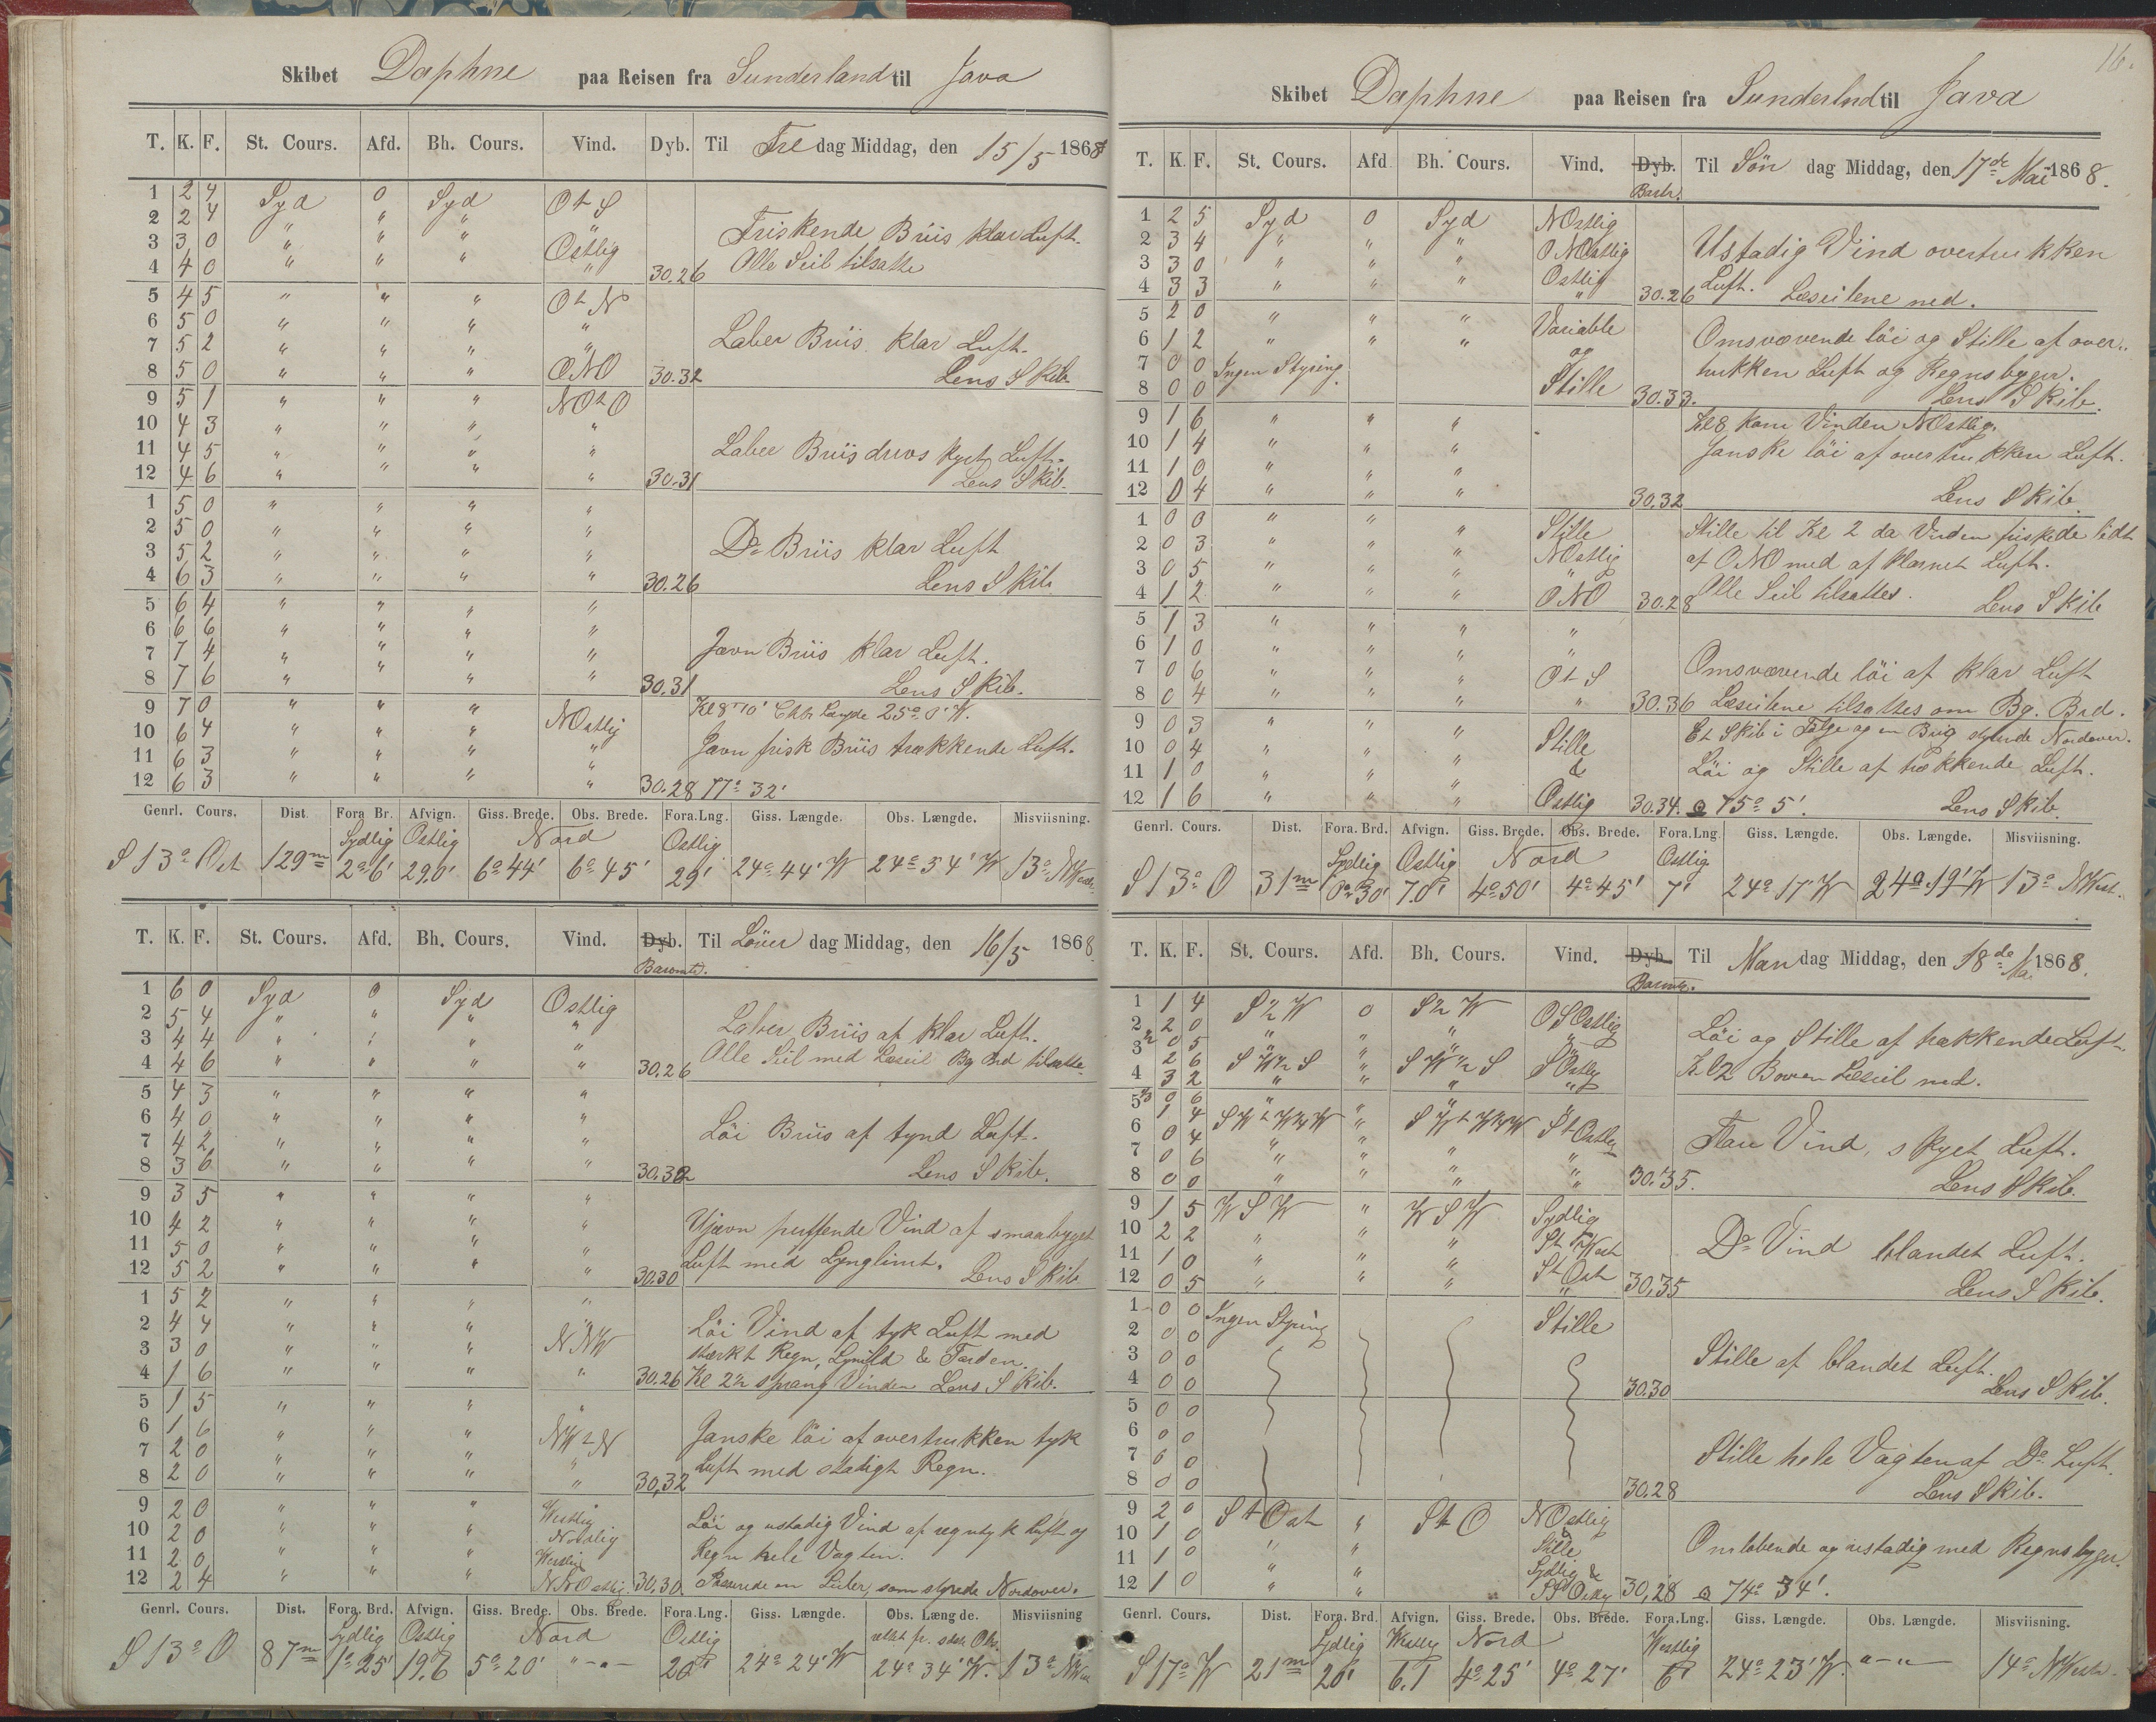 Skibet Daphne paa Reisen fra Sunderland til Java
T. K. F. St. Cours. Afd. Bh. Cours. Vind. Dyb. Til Fredag Middag, den 15/5 1868
1 2 4 Syd 0 Syd O t S
2 2 4 " " " " Friskende Briis klar Luft.
3 3 0 " " " Ostlig
4 4 0 " " " " 30.26 Alle Seil tilsatte
5 4 5 " " " O t N
6 5 0 " " " "
7 5 2 " " " " Laber Briis klar Luft.
8 5 0 " " " ONO 30.32 Lens Skib.
9 5 1 " " " NO t O
10 4 3 " " " "
11 4 5 " " " " Laber Briis drevs kyet Luft.
12 4 6 " " " " 30.31 Lens Skib.
1 5 0 " " " "
2 5 0 " " " "
3 5 2 " " " " Do Briis klar Luft
4 6 3 " " " " 30.26 Lens Skib
5 6 4 " " " "
6 6 6 " " " "
7 7 4 " " " " Jævn Briis klar Luft.
8 7 6 " " " " 30.31 Lens Skib.
9 7 0 " " " NOstlig Kl 8 70' Chtr Længde 25° 0' W.
10 6 4 " " " "
11 6 3 " " " " Jævn frisk Briis trækkende Luft.
12 6 3 " " " " 30.28 77° 32'
Genrl. Cours. Dist. Fora Br. Afvign. Giss. Brede. Obs. Brede. Fora.Lng. Giss. Længde. Obs. Længde. Misviisning.
Sydlig Ostlig Nord Ostlig
S 13° Ost 129m 2° 6' 29,0' 6° 44' 6° 45' 29' 24° 44' W 24° 54' W 13° NWest.
T. K. F. St. Cours. Afd. Bh. Cours. Vind. Dyb. Til Löver dag Middag, den 16/5 1868
Baromtr.
1 6 0 Syd 0 Syd Ostlig
2 5 4 " " " "
3 4 4 " " " " Laber Briis af klar Luft.
4 4 6 " " " " 30.26 Alle Seil med Læseil Bg Brd tilsatte
5 4 3 " " " "
6 4 0 " " " "
7 4 2 " " " " Löi Briis af tynd Luft.
8 3 6 " " " " 30.32 Lens Skib.
9 3 5 " " " "
10 4 2 " " " " Ujævn puffende Vind af smaabyget
11 5 0 " " " "
12 5 2 " " " " 30.30 Luft med Lynglimt. Lens Skib
1 5 2 " " " "
2 4 4 " " " " Löi Vind af tyk Luft med
3 3 0 " " " NNW stærkt Regn, Lynild & Torden.
4 1 6 " " " " 30.26 Kl 2½ sprang Vinden Lens Skib.
5 1 5 " " " "
6 1 6 " " " NW t N Ganske löi af overtrukken tyk
7 2 0 " " " "
8 2 0 " " " " 30,32 Luft med stadigt Regn.
9 2 0 " " " Westlig
10 2 0 " " " Nordlig Löi og ustadig Vind af regntyk Luft og
11 2 0 " " " Westlig Regn hele Vagten.
12 2 4 " " " NNOstlig 30,30 Passerede en Seiler, som styrede Nordover.
Genrl. Cours. Dist. Fora. Brd. Afvign. Giss. Brede. Obs. Brede. Fora.Lng. Giss. Længde. Obs. Længde. Misviisning
Sydlig Ostlig Nord Ostlig
S 13° O 87m 1° 25' 19,6 5° 20' "-"- 20' 24° 24' W 24° 34' W. 13° NWest
16.
Skibet Daphne paa Reisen fra Sunderlnd til Java
T. K. F. St. Cours. Afd Bh. Cours. Vind. Dyb. Til Sön dag Middag, den 17de Mai 1868.
Bartr.
1 2 5 Syd 0 Syd NOstlig
2 3 4 " " " ONOstlig Ustadig Vind overtrukken
3 3 0 " " " Ostlig
4 3 3 " " " " 30.26 Luft. Læseilene ned.
5 2 0 " " " Variable
6 1 2 " " " og Omsvævende löi og Stille af over..
7 0 0 Ingen Styring. trukken Luft og Regnsbyger.
8 0 0 Stille 30.33. Lens Skib.
9 1 6 " " " Kl 8 kom Vinden NOstlig.
10 1 4 " " " Ganske löi af overtrukken Luft.
11 1 0 " " "
12 0 4 " " " 30,32 Lens Skib
1 0 0 " " " Stille Stille til Kl 2 da Vinden friskede lidt
2 0 3 " " " NOstlig
3 0 5 " " " " af ONO med afklarnet Luft.
4 1 2 " " " ONO 30.28 Alle Seil tilsattes. Lens Skib
5 1 3 " " " "
6 1 0 " " " "
7 0 6 " " " O t S Omsvævende löi af klar Luft
8 0 4 " " " " 30.36 Læseilene tilsattes om Bg. Brd.
9 0 3 " " " Et Skib i Følge og en Brig styrende Nordover.
10 0 4 " " " Stille
11 1 0 " " " & Löi og Stille af trækkende Luft.
12 1 6 " " " Ostlig 30.34. 75° 5'. Lens Skib.
Genrl. Cours. Dist. Fora. Brd. Afvign. Giss. Brede. Obs. Brede. Fora.Lng Giss. Længde. Obs. Længde. Misviisning.
Sydlig Ostlig Nord Ostlig
S 13° O 31m 0° 30' 7.0' 4° 50' 4° 45' 7' 24° 17' W 24° 19' W 13° NWest.
T. K. F. St. Cours. Afd. Bh. Cours. Vind. Dyb. Til Man dag Middag, den 18de Ma 1868.
Barmtr.
1 1 4 S ½ W 0 S ½ W OSOstlig
2 2 0 " " " " Löi og Stille af trækkende Luft.
3 2 6 S W ½ S " S W ½ S SOstlig
4 3 2 " " " " Kl 2 Boven Læseil ned.
5 1 4 S W t W ½ W " S W t W ½ W S t Ostlig
6 0 4 " " " " Flau Vind, skyet Luft.
7 0 6 " " " "
8 0 0 " " " " 30.35. Lens Skib.
9 1 5 W S W " W S W Sydlig
10 2 2 " " " S t West Do Vind blandet Luft.
11 1 0 " " " S t Ost
12 0 5 " " " " 30,35 Lens Skib.
1 0 0 Ingen Styring Stille
2 0 0
3 0 0 Stille af blandet Luft.
4 0 0 30.30 Lens Skib.
5 0 0
6 0 0
7 0 0 Stille hele Vagten af Do Luft.
8 0 0 30.28 Lens Skib.
9 2 0 S t Ost " S t O NOstlig
10 1 0 " " & Omløbende og ustadig med Regnsbyger.
11 1 0 " " Stille
12 1 0 " " Sydlig & 30,28 74° 34'.
Genrl. Cours. Dist. Fora. Brd. Afvign. Giss. Brede. Obs. Brede. Fora.Lng. Giss. Længde. Obs. Længde. Misviisning.
Sydlig Westlig Nord Westlig
S 17° W 21m 20' 6.1 4° 25' 4° 27' 6' 24° 23' W. "-"- 14° NWestr.